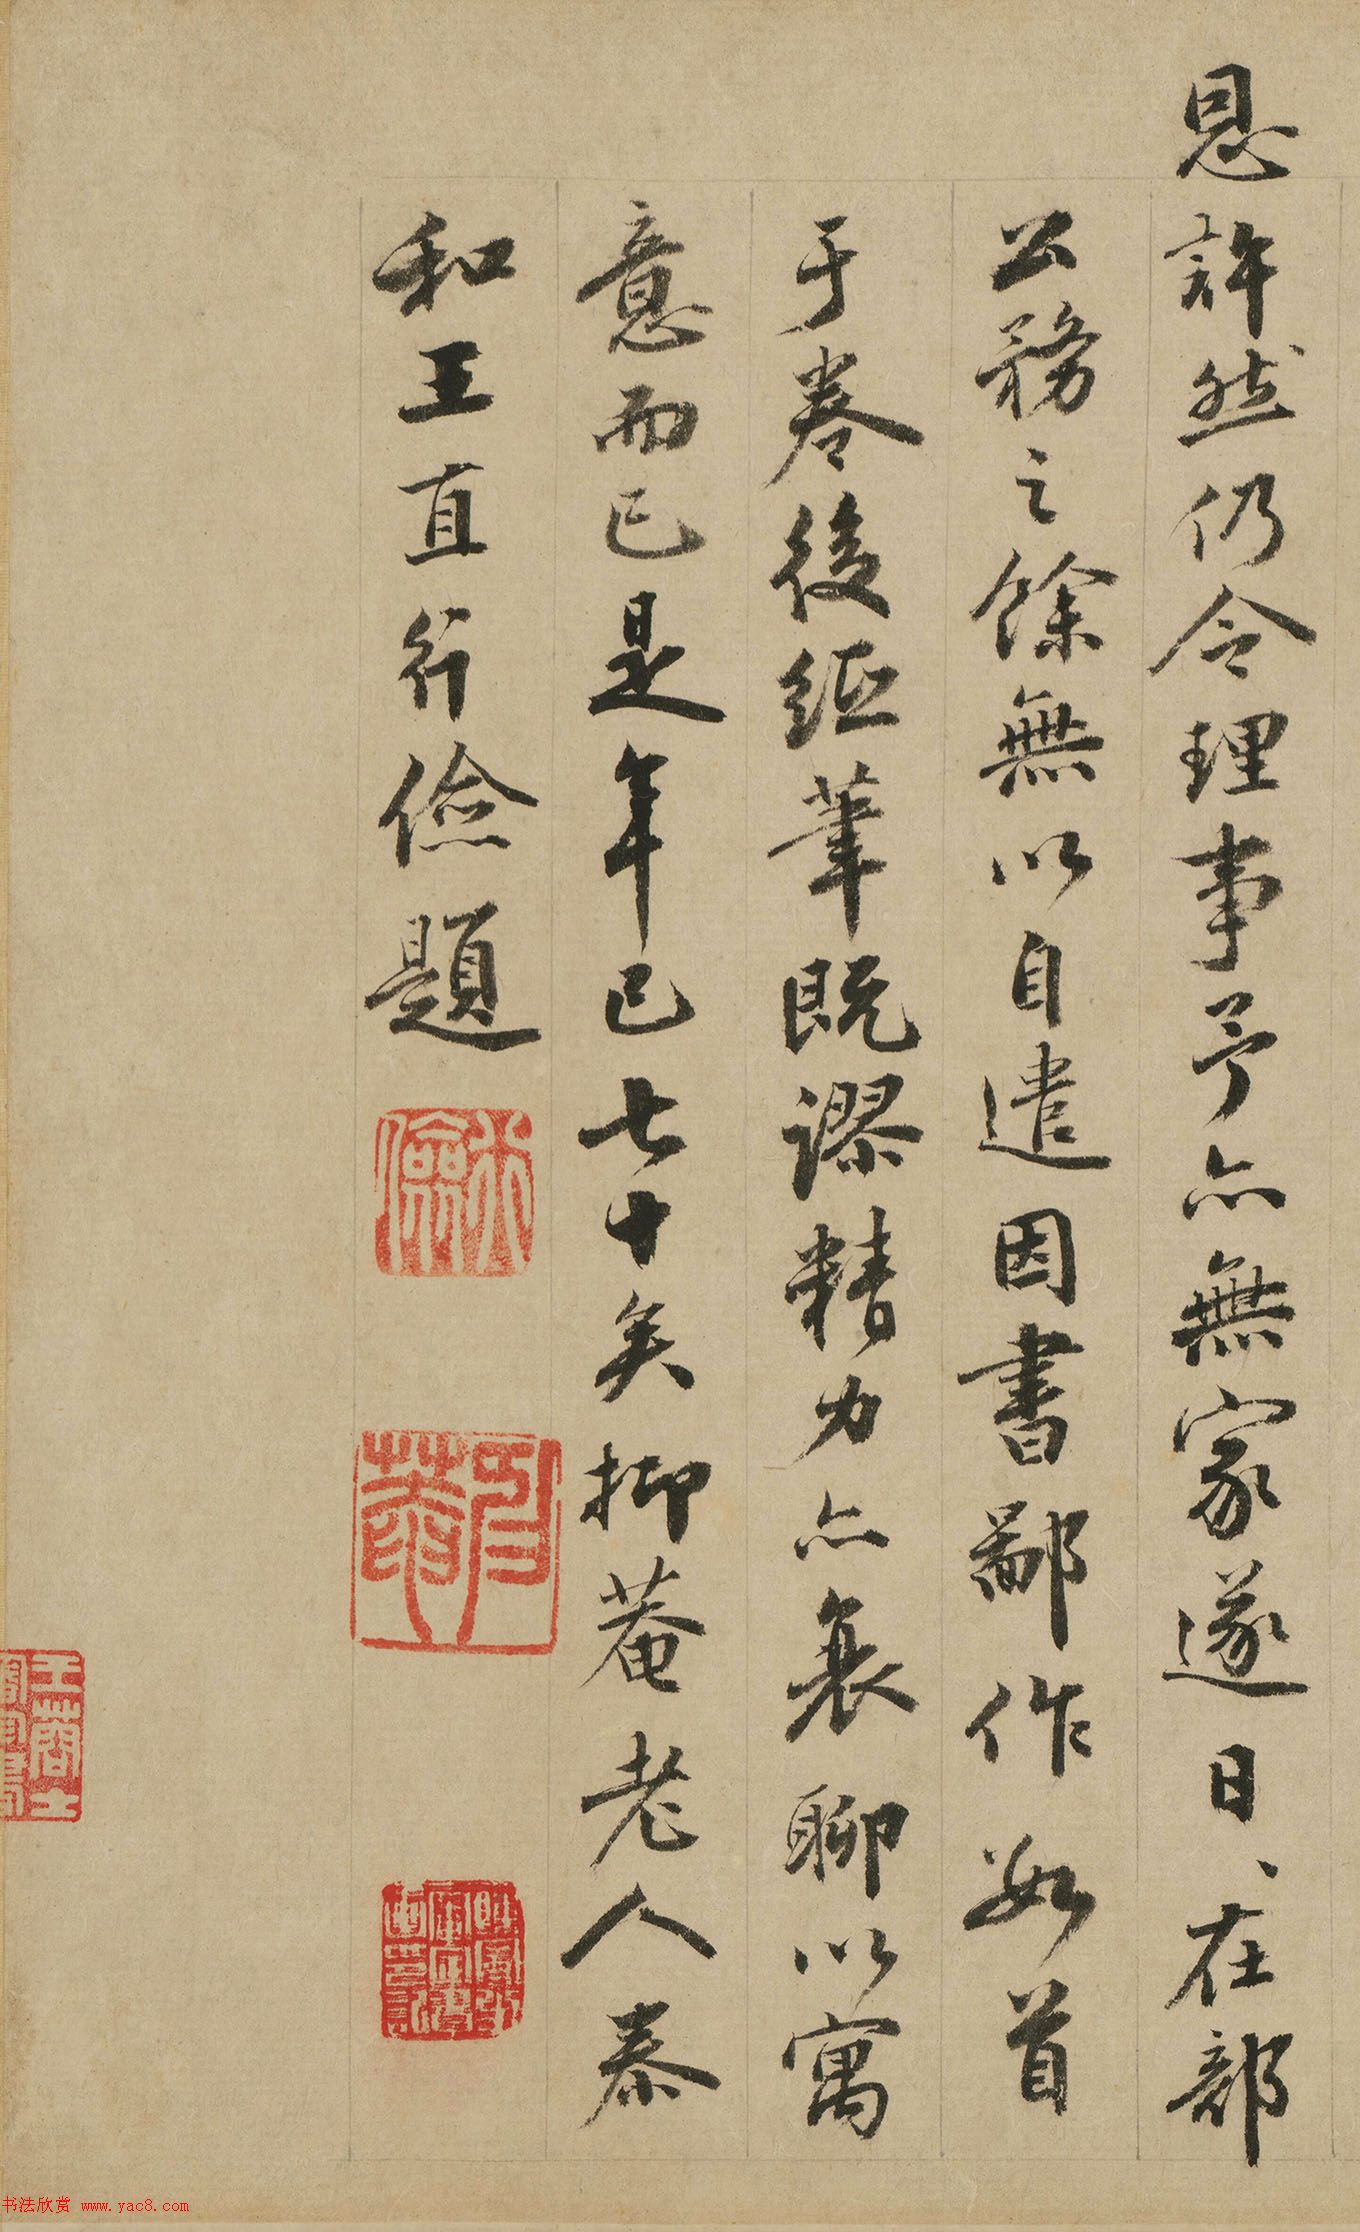 恩許然仍令理事予亦無家遂日、在部
公務之餘無以自遣因書鄙作數首
于卷後經筆既謬精力亦衰聊以寓
意而已是年已七十矣抑菴老人泰
和王直行儉題
书法欣赏 www.yac8.com